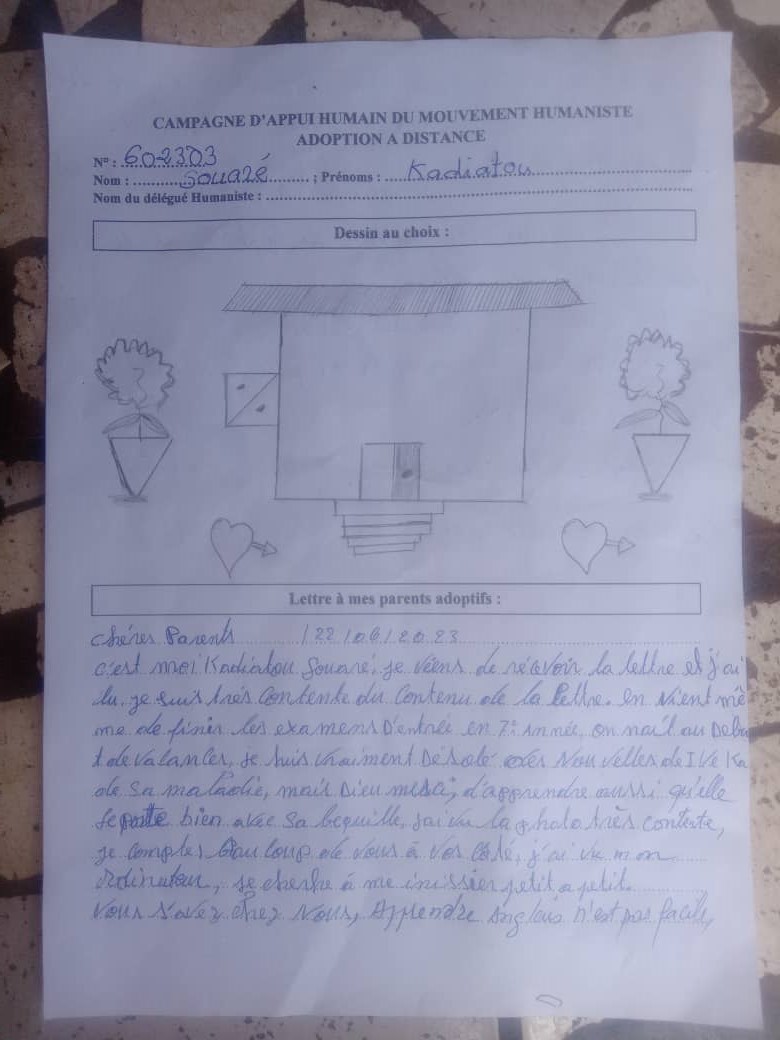 CAMPAGNE D'APPUI HUMAIN DU MOUVEMENT HUMANISTE
ADOPTION A DISTANCE
N° : 602303
Nom : Souaré ; Prénoms : Kadiatou
Nom du délégué Humaniste :
Dessin au choix :
Lettre à mes parents adoptifs :
Chéres Parents /22/06/2023
c'est moi Kadiatou Souaré, je viens de récevoir la lettre et j'ai
lu, je suis très contente du contenu de la lettre. en vient mê
me de finir les examens D'entrée en 7e Année, on est au Debu
t de vacances, je suis vraiment Désolé des Nouvelles de
de sa maladie, mais Dieu merci, d'apprendre aussi qu'elle
se porte bien avec sa bequille, j'ai vu la photo très contente,
je comptes Beaucoup de vous à vos côté, j'ai vu mon
Ordinateur, je cherche à me inissier petit a petit.
Vous savez chez Nous, Apprendre Anglais n'est pas facile,